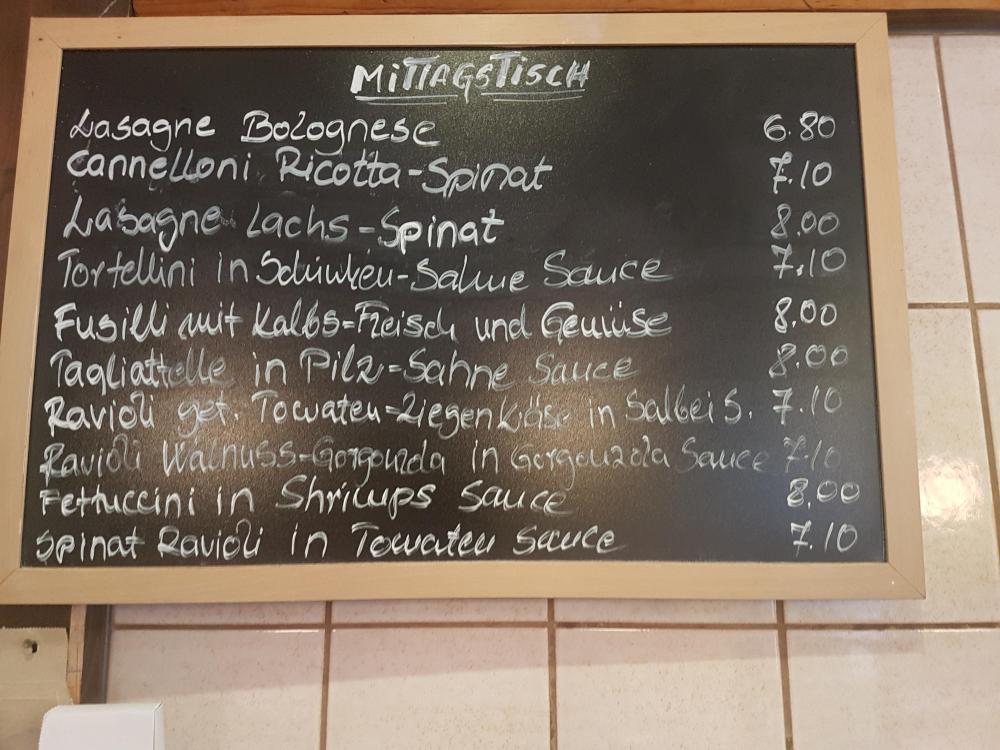 MITTAGSTISCH
Lasagne Bolognese 6.80
Cannelloni Ricotta-Spinat 7.10
Lasagne Lachs-Spinat 8.00
Tortellini in Schinken-Sahne Sauce 7.10
Fusilli mit Kalbs=Fleisch und Gemüse 8.00
Tagliattelle in Pilz=Sahne Sauce 8.00
Ravioli gef. Tomaten=Ziegenkäse in Salbei S. 7.10
Ravioli Walnuss-Gorgonzola in Gorgonzola Sauce 7.10
Fettuccini in Shrimps Sauce 8.00
Spinat Ravioli in Tomaten Sauce 7.10